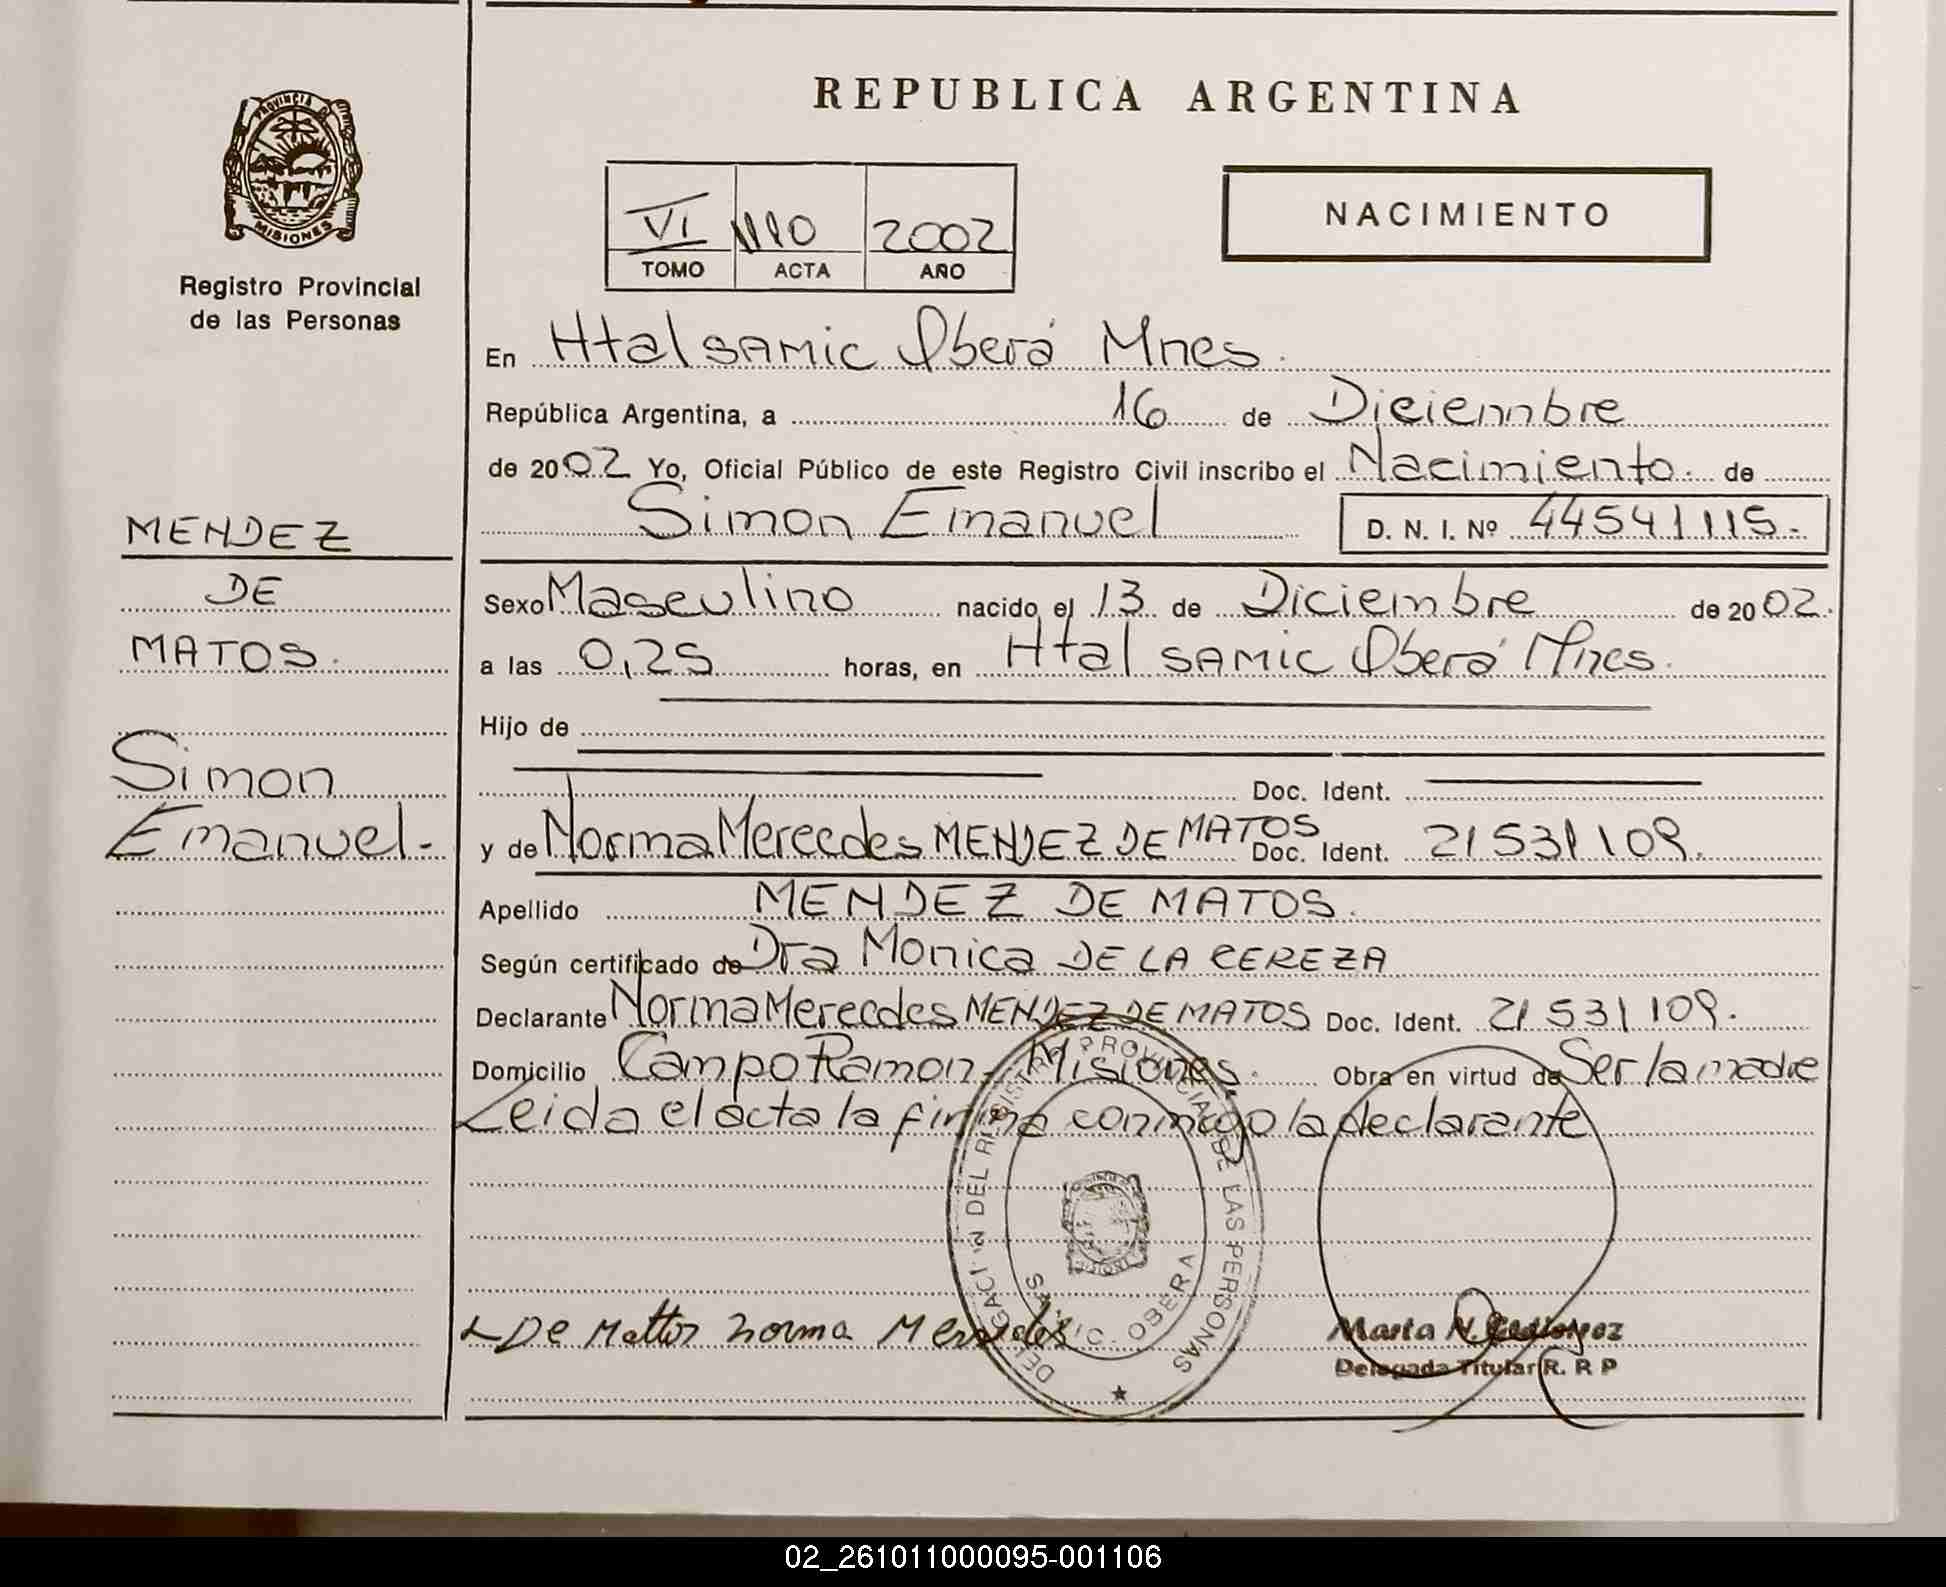 REPUBLICA ARGENTINA
PROVINCIA DE MISIONES
Registro Provincial
de las Personas
VI 1110 2002
TOMO ACTA AÑO
NACIMIENTO
En Htal SAMIC Oberá Mnes.
República Argentina, a 16 de Diciembre
de 2002 Yo, Oficial Público de este Registro Civil inscribo el Nacimiento. de
Simon Emanuel D. N. I. Nº 44541115.-
MENDEZ
DE
MATOS.
Simon
Emanuel.-
Sexo Masculino nacido el 13 de Diciembre de 2002.
a las 0,25 horas, en Htal SAMIC Oberá Mnes.
Hijo de
Doc. Ident.
y de Norma Mercedes MENDEZ DE MATOS Doc. Ident. 21531109.
Apellido MENDEZ DE MATOS.
Según certificado de Dra Monica DE LA CEREZA
Declarante Norma Mercedes MENDEZ DE MATOS Doc. Ident. 21531109.
Domicilio Campo Ramon, Misiones. Obra en virtud de Ser la madre
Leida el acta la firma conmigo la declarante
DELEGACION DEL REGISTRO PROVINCIAL DE LAS PERSONAS
OBERA
De Mattos Norma Mercedes
Marta N.
Delegada Titular R. R P
02_261011000095-001106